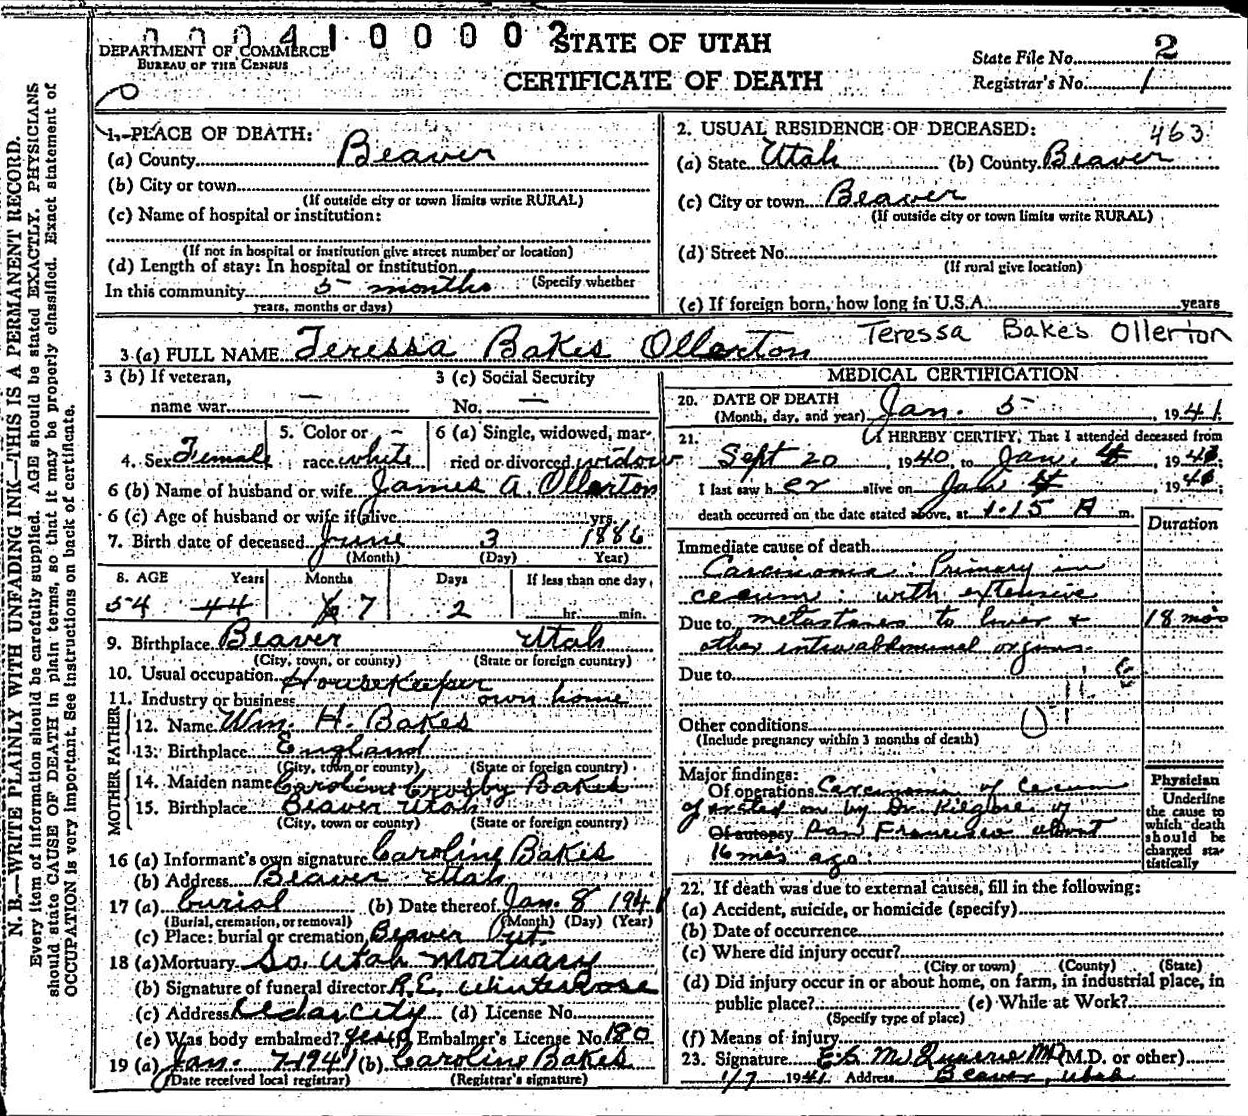 0004100002
DEPARTMENT OF COMMERCE
BUREAU OF THE CENSUS
STATE OF UTAH
CERTIFICATE OF DEATH
State File No. 2
Registrar's No. 1
N. B.—WRITE PLAINLY WITH UNFADING INK—THIS IS A PERMANENT RECORD.
Every item of information should be carefully supplied. AGE should be stated EXACTLY. PHYSICIANS
should state CAUSE OF DEATH in plain terms, so that it may be properly classified. Exact statement of
OCCUPATION is very important. See instructions on back of certificate.
1. PLACE OF DEATH:
(a) County Beaver
(b) City or town
(If outside city or town limits write RURAL)
(c) Name of hospital or institution:
(If not in hospital or institution give street number or location)
(d) Length of stay: In hospital or institution
(Specify whether
In this community 5 months
years, months or days)
2. USUAL RESIDENCE OF DECEASED: 463
(a) State Utah (b) County Beaver
(c) City or town Beaver
(If outside city or town limits write RURAL)
(d) Street No.
(If rural give location)
(e) If foreign born, how long in U.S.A. years
3 (a) FULL NAME Teressa Bakes Ollerton Teressa Bakes Ollerton
3 (b) If veteran,
name war —
3 (c) Social Security
No. —
4. Sex Female
5. Color or
race white
6 (a) Single, widowed, mar-
ried or divorced widow
6 (b) Name of husband or wife James A. Ollerton
6 (c) Age of husband or wife if alive yrs.
7. Birth date of deceased June 3 1886
(Month) (Day) Year)
8. AGE Years Months Days If less than one day,
54 44 7 2 hr. min.
9. Birthplace Beaver Utah
(City, town, or county) (State or foreign country)
10. Usual occupation Housekeeper
11. Industry or business own home
FATHER
12. Name Wm. H. Bakes
13. Birthplace England
(City, town or county) (State or foreign country)
MOTHER
14. Maiden name Caroline Crosby Bakes
15. Birthplace Beaver Utah
(City, town or county) (State or foreign country)
16 (a) Informant's own signature Caroline Bakes
(b) Address Beaver Utah
17 (a) burial (b) Date thereof Jan. 8 1941
(Burial, cremation, or removal) (Month) (Day) (Year)
(c) Place: burial or cremation Beaver Ut.
18 (a) Mortuary So. Utah Mortuary
(b) Signature of funeral director R.E. Winterrose
(c) Address Cedar City (d) License No.
(e) Was body embalmed? yes Embalmer's License No. 180
19 (a) Jan. 7 1941 (b) Caroline Bakes
(Date received local registrar) (Registrar's signature)
MEDICAL CERTIFICATION
20. DATE OF DEATH
(Month, day, and year) Jan. 5, 1941
21. I HEREBY CERTIFY, That I attended deceased from
Sept 20, 1940, to Jan. 4, 1941
I last saw her alive on Jan 4, 1941
death occurred on the date stated above, at 1:15 A m.
Duration
Immediate cause of death
Carcinoma: Primary in
cecum: with extensive
Due to metastases to liver + 18 mos
other intraabdominal organs.
Due to
Other conditions
(Include pregnancy within 3 months of death)
Major findings:
Of operations Carcinoma of Cecum
operated on by Dr. Kilgore of
Of autopsy San Francisco about
16 mos ago.
Physician
Underline
the cause to
which death
should be
charged sta-
tistically
22. If death was due to external causes, fill in the following:
(a) Accident, suicide, or homicide (specify)
(b) Date of occurrence
(c) Where did injury occur?
(City or town) (County) (State)
(d) Did injury occur in or about home, on farm, in industrial place, in
public place? (e) While at Work?
(Specify type of place)
(f) Means of injury
23. Signature MD (M.D. or other)
1/7 1941 Address Beaver, Utah